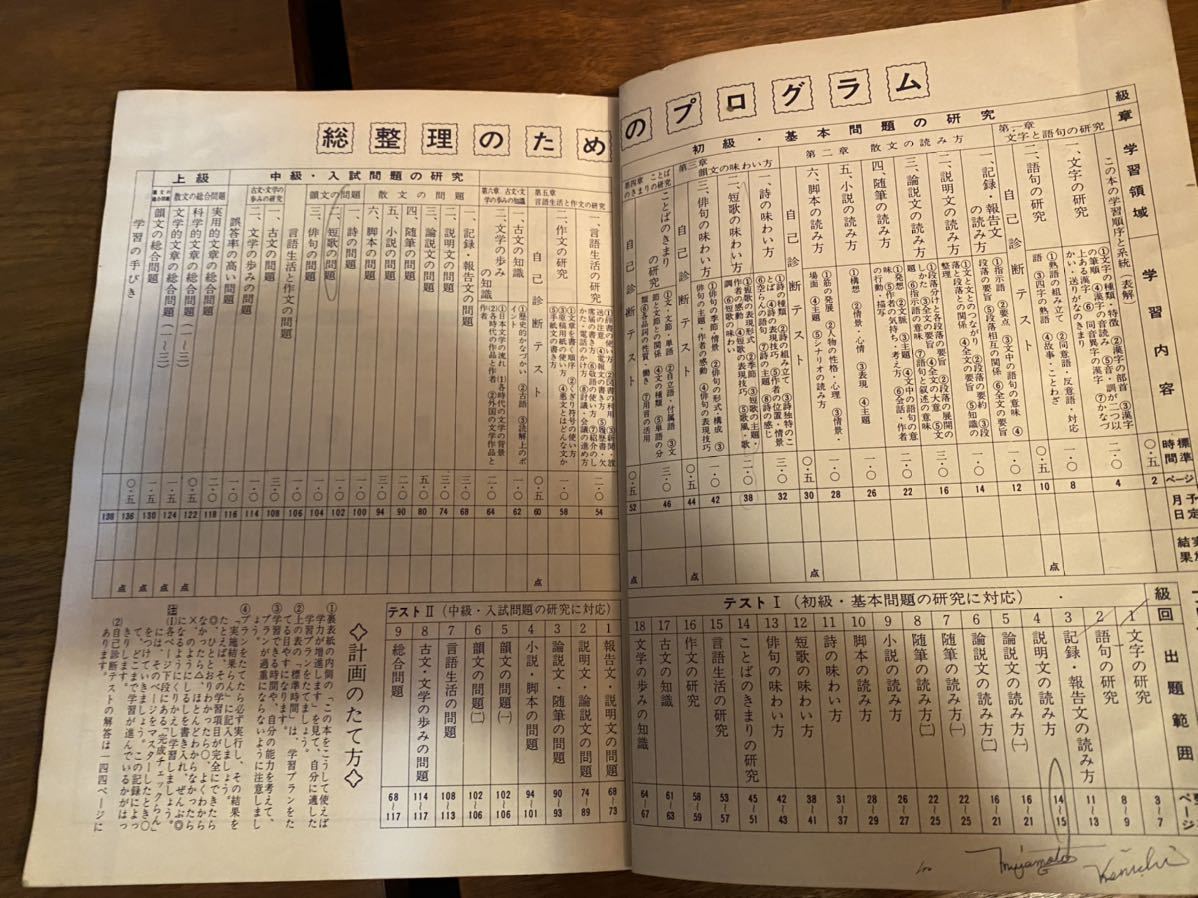 総整理のためのプログラム
級
章
学習領域
学習内容
標準時間
ページ
予定月日
初級・基本問題の研究
この本の学習順序と系統表解
〇・五
2
第一章 文字と語句の研究
一、文字の研究
①文字の種類・特徴 ②漢字の部首 ③漢字の筆順 ④漢字の音読み ⑤音・訓が二つ以上ある漢字 ⑥同音異字の漢字 ⑦かなづかい・送りがなのきまり
一・〇
4
二、語句の研究
①熟語の組み立て ②同意語・反意語・対応語 ③四字の熟語 ④故事・ことわざ
一・〇
8
自己診断テスト
〇・五
10
点
第二章 散文の読み方
一、記録・報告文の読み方
①指示語 ②要点 ③文中の語句の意味 ④段落の要旨 ⑤段落相互の関係 ⑥全文の要旨
一・〇
12
二、説明文の読み方
①文と文とのつながり ②段落の要約 ③段落と段落との関係 ④全文の要旨 ⑤知識の整理
一・〇
14
三、論説文の読み方
三・〇
16
四、随筆の読み方
①発想 ②文脈 ③主題 ④文中の語句の意味 ⑤作者の気持ち・考え方 ⑥会話・作者の行動・描写
二・〇
22
五、小説の読み方
①構想 ②情景・心情 ③表現 ④主題
一・〇
26
六、脚本の読み方
①筋の発展 ②人物の性格・心理 ③情景・場面 ④主題 ⑤シナリオの読み方
一・〇
28
自己診断テスト
〇・五
30
点
第三章 韻文の味わい方
一、詩の味わい方
①詩の種類 ②詩の組み立て ③詩独特のことば ④詩の表現技巧 ⑤作者の位置・情景 ⑥空らんの語句 ⑦詩の主題 ⑧詩の感じ
三・〇
32
二、短歌の味わい方
①短歌の表現形式 ②季節 ③短歌の主題・作者の感動 ④短歌の表現技巧 ⑤歌風・歌調 ⑥短歌の味わい
二・〇
38
三、俳句の味わい方
①俳句の季節・情景 ②俳句の形式・構成 ③俳句の主題・作者の感動 ④俳句の表現技巧
一・〇
42
自己診断テスト
〇・五
44
点
第四章 ことばのきまりの研究
ことばのきまりの研究
①文・文節・単語 ②自立語・付属語 ③文節と文節の関係 ④文の種類 ⑤単語の分類 ⑥各品詞の性質・働き ⑦用言の活用
三・〇
46
自己診断テスト
〇・五
52
点
第五章 言語生活と作文の研究
一、言語生活の研究
二・〇
54
二、作文の研究
一・〇
58
自己診断テスト
〇・五
60
点
第六章 古文・文学の歩みの知識
一、古文の知識
①歴史的かなづかい ②古語 ③読解上のポイント
一・〇
62
二、文学の歩みの知識
①文学の流れ
二・〇
64
中級・入試問題の研究
散文の問題
一、記録・報告文の問題
三・〇
68
二、説明文の問題
三・〇
74
三、論説文の問題
80
四、随筆の問題
二・〇
90
五、小説の問題
94
六、脚本の問題
三・〇
94
韻文の問題
一、詩の問題
一・〇
100
二、短歌の問題
一・〇
102
三、俳句の問題
一・〇
104
言語生活と作文の問題
一・〇
106
古文・文学の歩みの研究
一、古文の問題
三・〇
108
二、文学の歩みの問題
一・〇
114
誤答率の高い問題
一・〇
116
上級
散文の総合問題
実用的文章の総合問題
118
科学的文章の総合問題（一～三）
〇・五
122
点
文学的文章の総合問題（一～三）
一・五
124
点
韻文の総合問題
一・五
130
点
学習の手びき
〇・五
136
点
138
テストⅠ（初級・基本問題の研究に対応）
級回
出題範囲
1 文字の研究 3～7
2 語句の研究 8～9
3 記録・報告文の読み方 11～13
4 説明文の読み方 14～15
5 論説文の読み方㈠ 16～21
6 論説文の読み方㈡ 16～21
7 随筆の読み方㈠ 22～25
8 随筆の読み方㈡ 22～25
9 小説の読み方 26～27
10 脚本の読み方 28～29
11 詩の味わい方 31～37
12 短歌の味わい方 38～41
13 俳句の味わい方 42～43
14 ことばのきまりの研究 45～51
15 言語生活の研究 53～57
16 作文の研究 58～59
17 古文の知識 61～63
18 文学の歩みの知識 64～67
テストⅡ（中級・入試問題の研究に対応）
1 報告文・説明文の問題 68～73
2 説明文・論説文の問題 74～89
3 論説文・随筆の問題 90～93
4 小説・脚本の問題 94～101
5 韻文の問題㈠ 102～106
6 韻文の問題㈡ 102～106
7 言語生活の問題 108～113
8 古文・文学の歩みの問題 114～117
9 総合問題 68～117
◇計画のたて方◇
①裏表紙の内側の「この本をこうして使えば学力が増進します」を見て、自分に適した学習プランをたてましょう。
②上の表の「標準時間」は、学習プランをたてる目やすになります。
③学習できる時間や、自分の能力を考えて、プランが過重にならないように注意しましょう。
④プランをたてたら必ず実行し、その結果を「実施結果らん」に記入しましょう。
たとえば、その学習項目が完全にできたら◎、ひととおりわかったら〇、よくわからなかったら△、ほとんどわからなかったら×、のようにしるしを書き入れ、ぜんぶ◎になるようにくりかえし学習しましょう。
注⑴各ページ下段にある「完成チェックらん」には、そのページをマスターしたとき〇をつけていきましょう。この記録によって、どこまで学習が進んでいるかがはっきりします。
⑵自己診断テストの解答は一四四ページにあります。
Miyamoto Kenichi